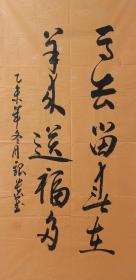 马去留春在
羊来送福多
乙未年冬月